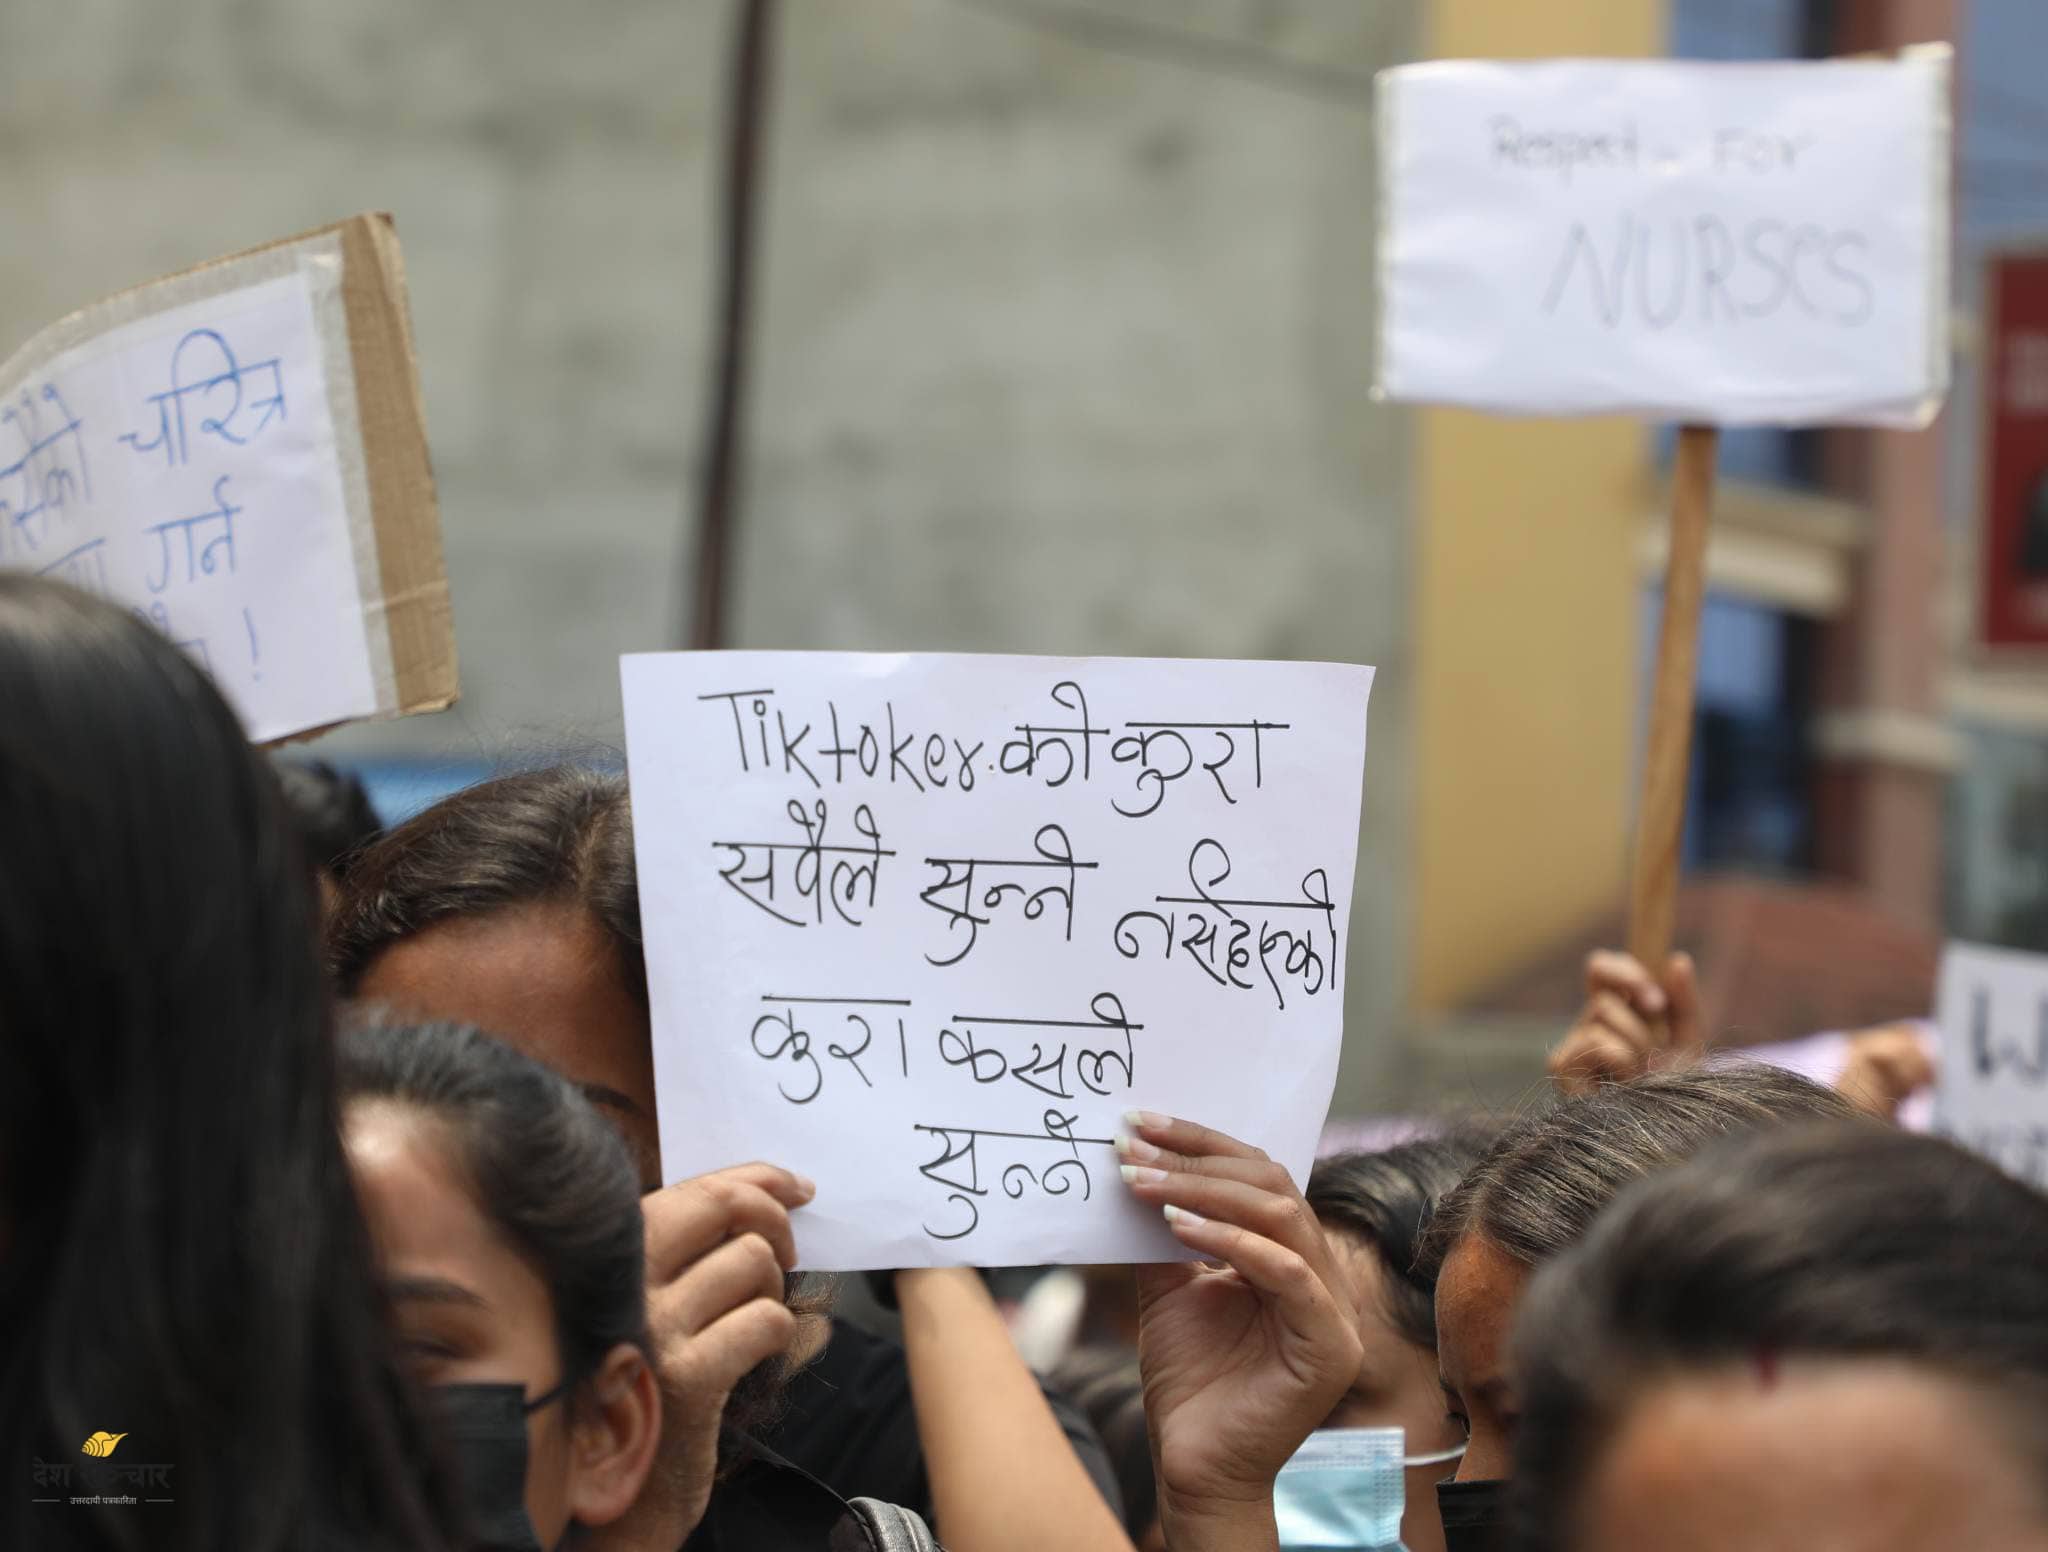 चरित्र
गर्न
!
Respect For
NURSES
Tiktoker को कुरा
सवैले सुन्ने नर्सहरुको
कुरा कसले
सुन्ने
देश सञ्चार
उत्तरदायी पत्रकारिता